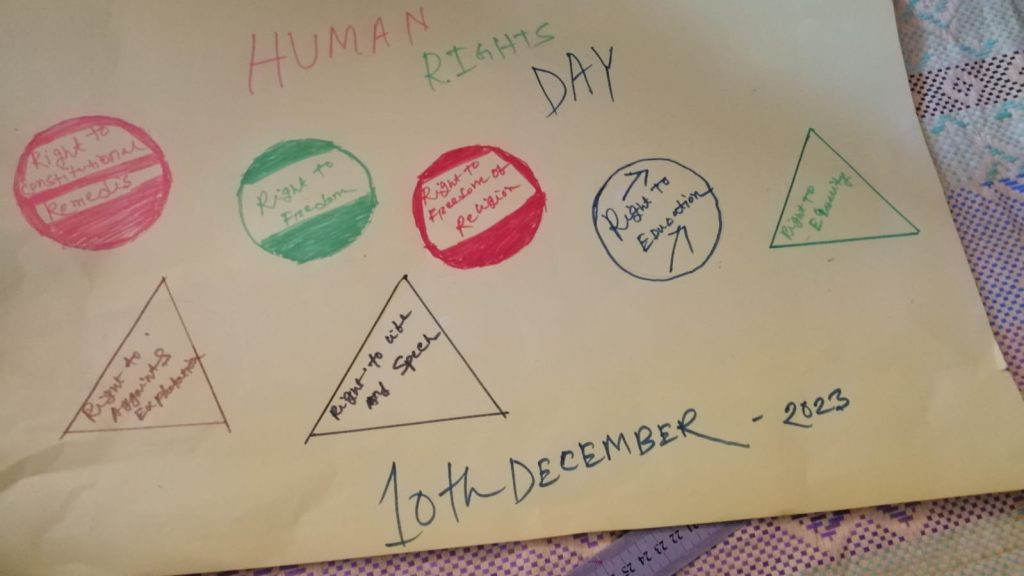 HUMAN
RIGHTS
DAY
Right to
constitutional
Remedis
Right to
Freedom
Right to
Freedom of
Religion
Right to
Education
Right to
Right to
Right to life
and Speech
10th DECEMBER - 2023
22 23 24 25